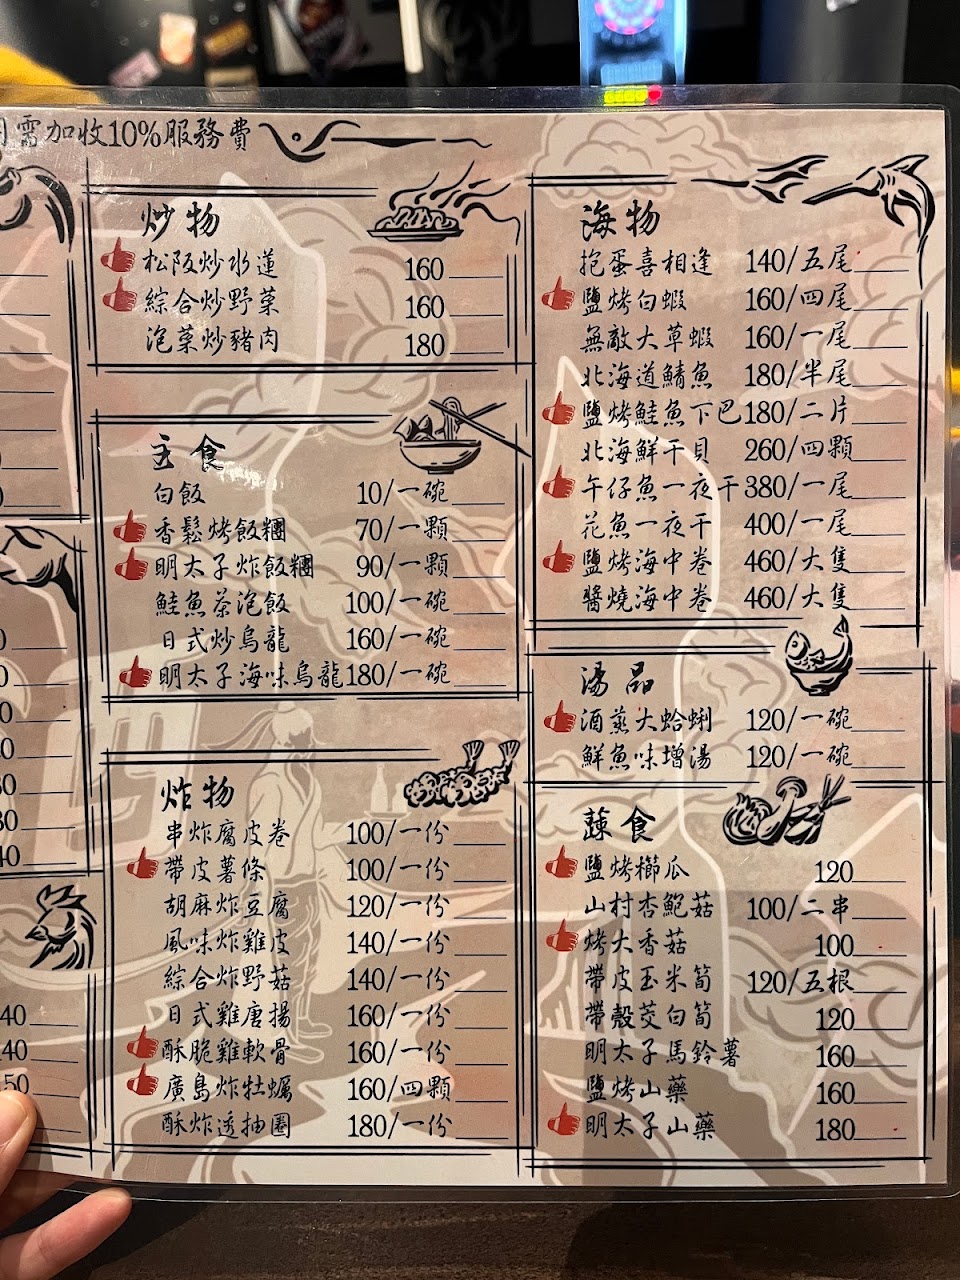 需加收10%服務費
炒物
松阪炒水蓮 160
綜合炒野菜 160
泡菜炒豬肉 180
主食
白飯 10/一碗
香鬆烤飯糰 70/一顆
明太子炸飯糰 90/一顆
鮭魚茶泡飯 100/一碗
日式炒烏龍 160/一碗
明太子海味烏龍 180/一碗
炸物
串炸腐皮卷 100/一份
帶皮薯條 100/一份
胡麻炸豆腐 120/一份
風味炸雞皮 140/一份
綜合炸野菇 140/一份
日式雞唐揚 160/一份
酥脆雞軟骨 160/一份
廣島炸牡蠣 160/四顆
酥炸透抽圈 180/一份
海物
抱蛋喜相逢 140/五尾
鹽烤白蝦 160/四尾
無敵大草蝦 160/一尾
北海道鯖魚 180/半尾
鹽烤鮭魚下巴 180/二片
北海鮮干貝 260/四顆
午仔魚一夜干 380/一尾
花魚一夜干 400/一尾
鹽烤海中卷 460/大隻
醬燒海中卷 460/大隻
湯品
酒蒸大蛤蜊 120/一碗
鮮魚味增湯 120/一碗
蔬食
鹽烤櫛瓜 120
山村杏鮑菇 100/二串
烤大香菇 100
帶皮玉米筍 120/五根
帶殼茭白筍 120
明太子馬鈴薯 160
鹽烤山藥 160
明太子山藥 180